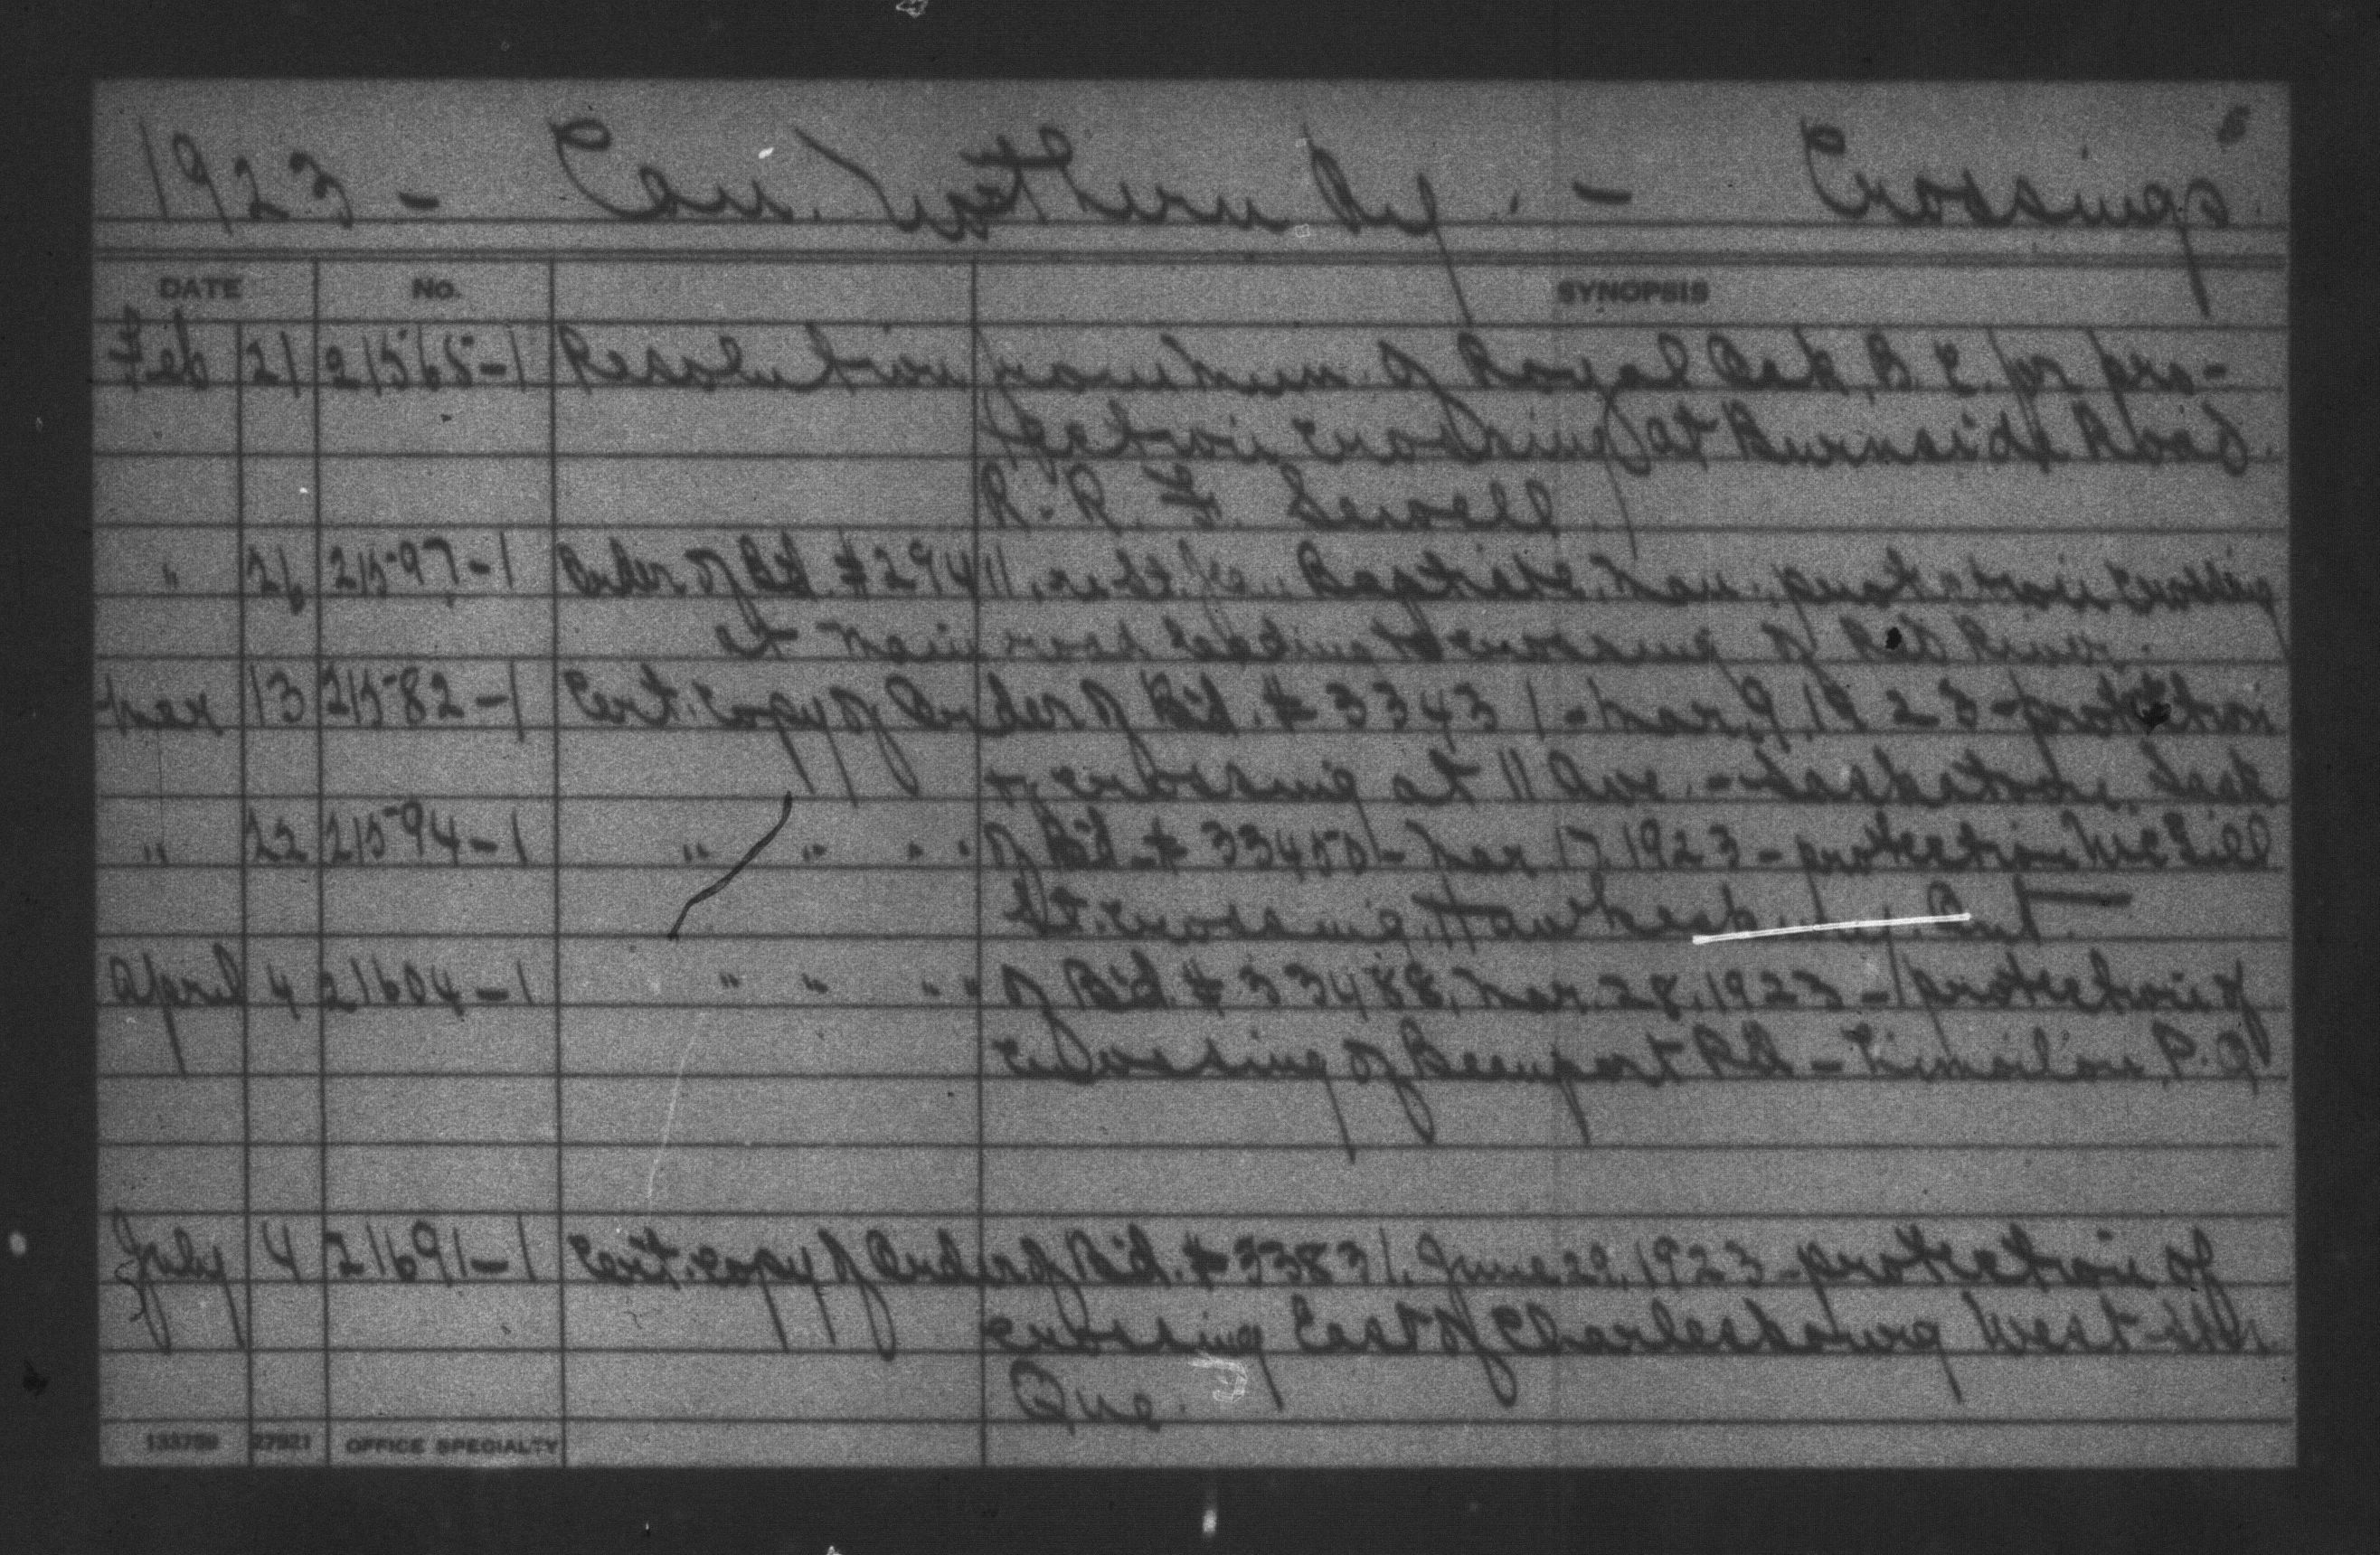 1923 - Can. Northern Ry. - Crossings
5
DATE No. SYNOPSIS
Feb 21 21565-1 Resolution from mun. of Royal Oak, B.C. for pro-
tection crossing at Burnside Road.
R. R. F. Sewell
" 26 21597-1 Order of Bd. #29411, re St. Jean Baptiste, Man. protection crossing
at main road leading to crossing of Red River.
Mar 13 21582-1 Cert. copy of Order of Bd. #33431 - Mar. 9, 1923 - protection
crossing at 11 Ave. - Saskatoon, Sask
" 22 21594-1 " " " " of Bd. # 33450 - Mar 17, 1923 - protection McGill
St. crossing, Hawkesbury, Ont.
April 4 21604-1 " " " " of Bd. # 33488, Mar. 28, 1923 - protection of
crossing of Beauport Rd - P.Q.
July 4 21691-1 Cert. copy of Order of Bd. #33831, June 29, 1923 - protection of
crossing East of Charlesbourg West
Que.
133759 27921 OFFICE SPECIALTY